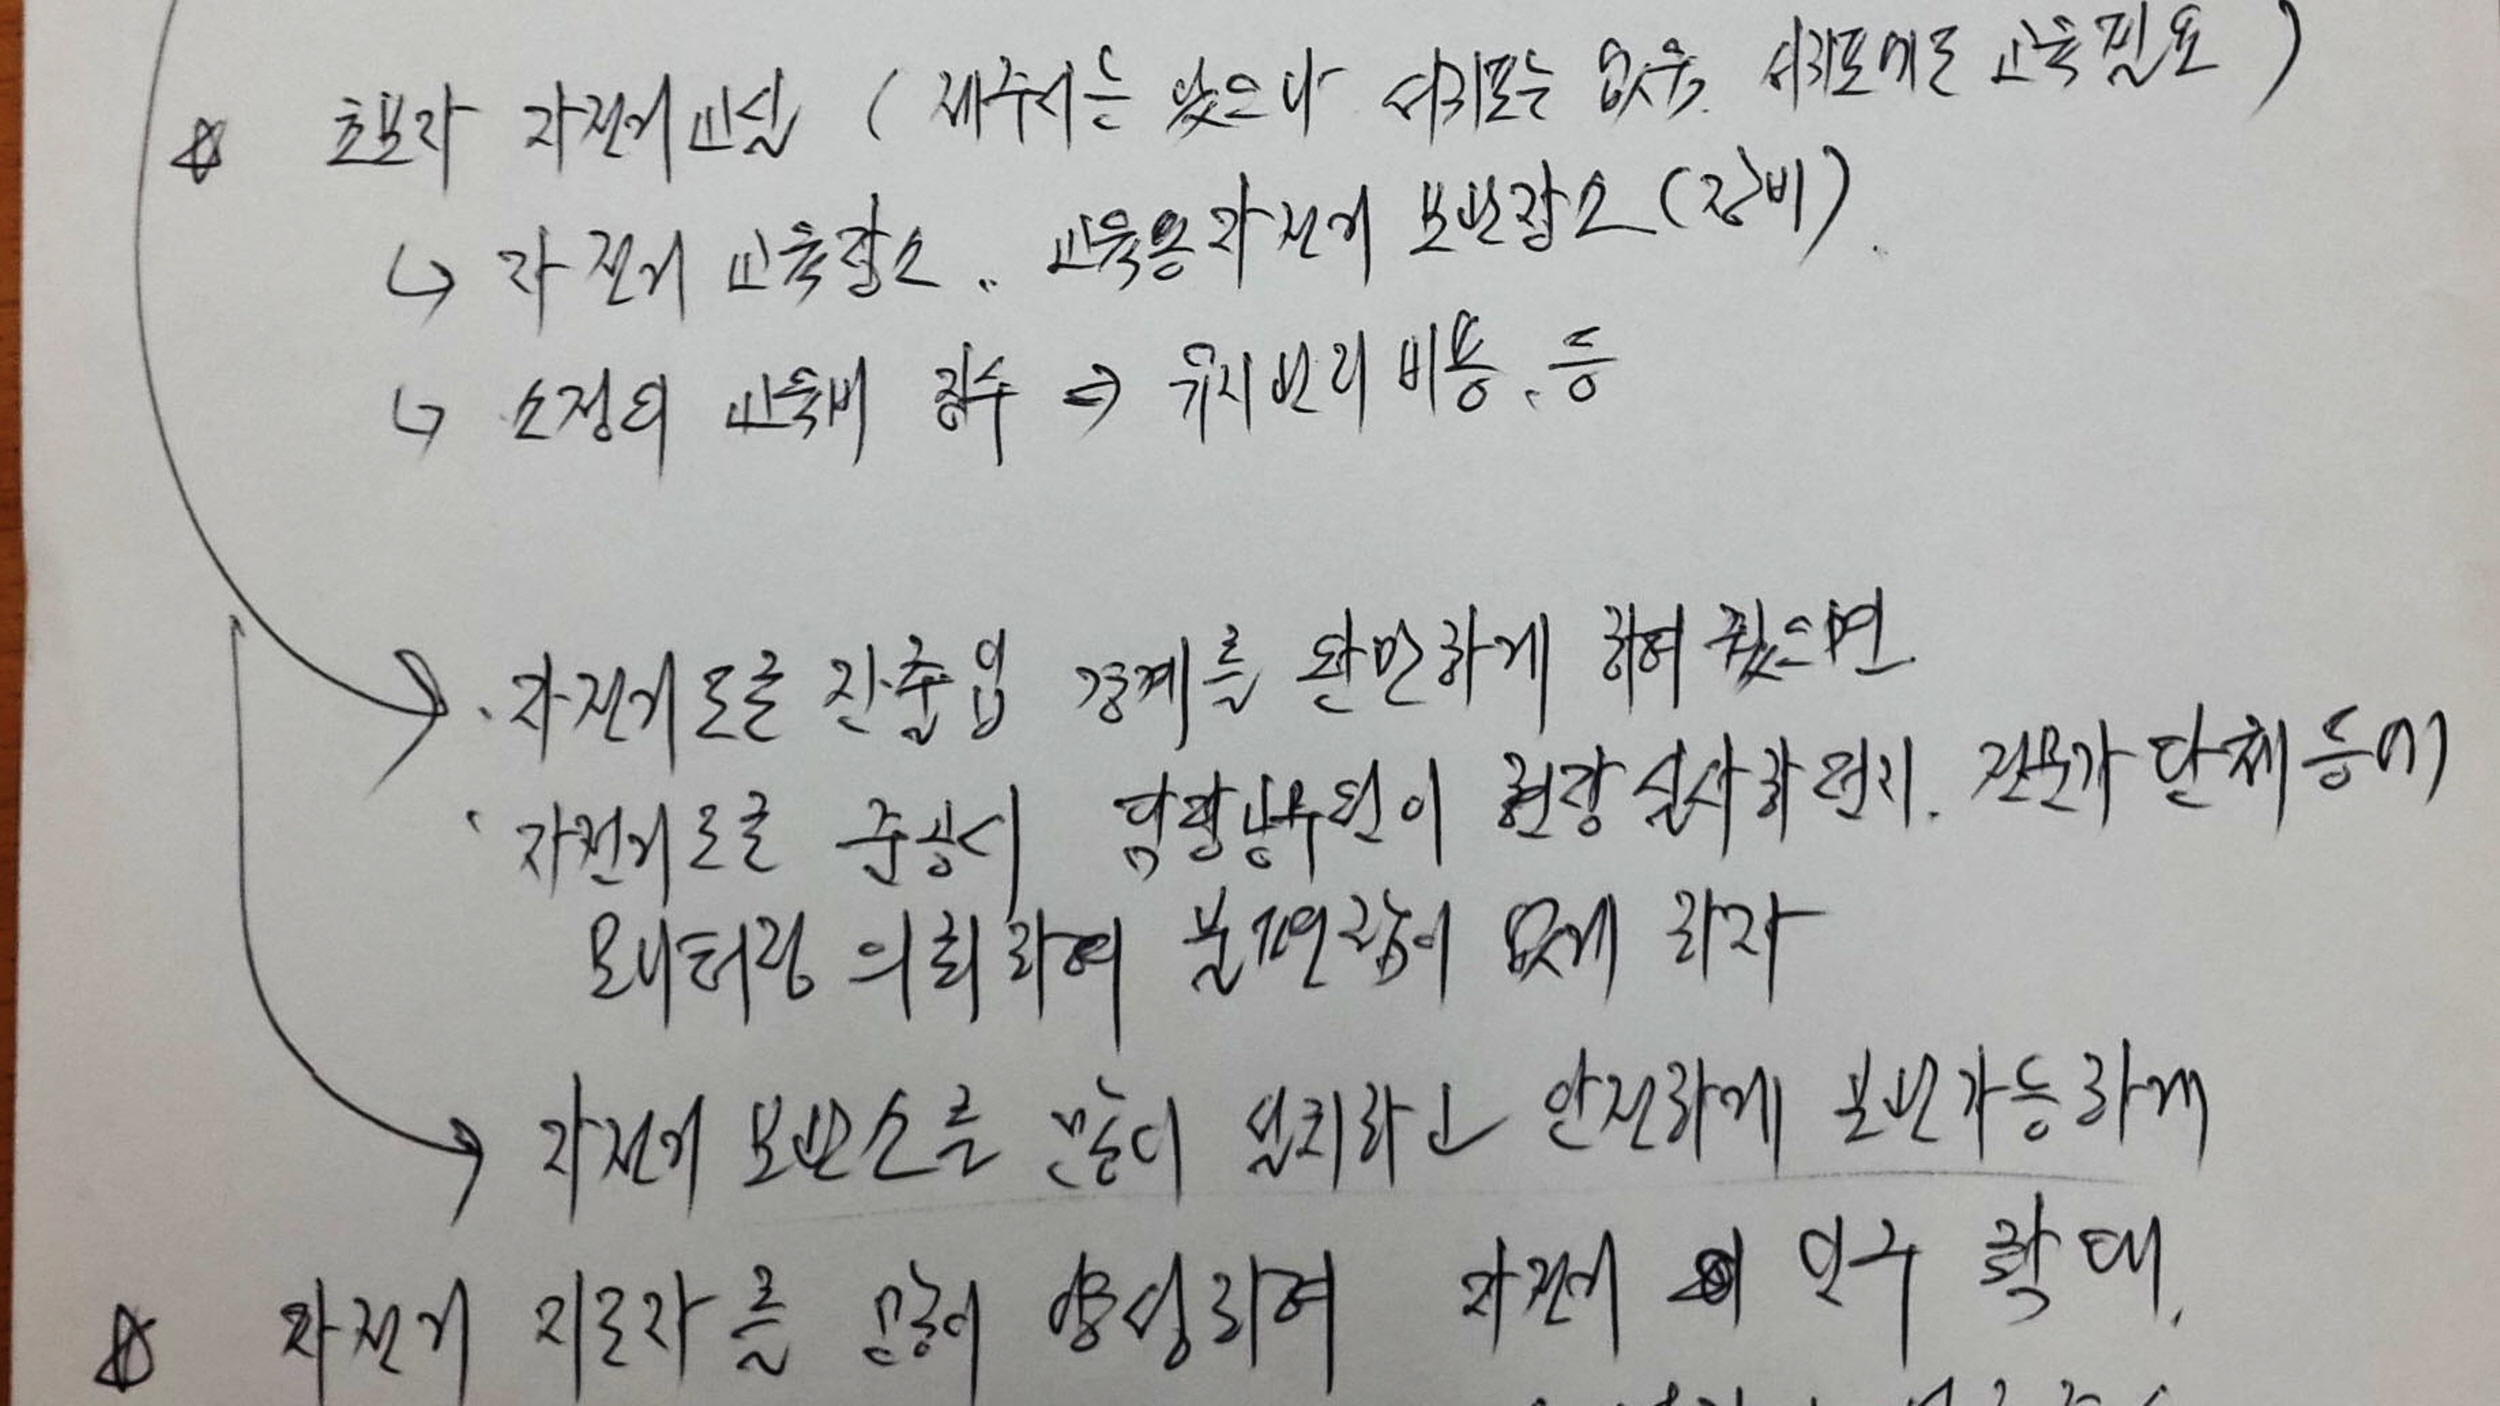 ☆ 초보자 자전거교실 (제주시는 있으나 서귀포는 없음. 서귀포에도 교육필요)
↳ 자전거 교육장소.. 교육용자전거 보관장소(장비).
↳ 소정의 교육비 징수 ⇒ 유지관리비용. 등
· 자전거도로 진·출입 경계를 완만하게 하여 줬으면
· 자전거도로 준공시 현장실사하던지. 전문가단체등에
모니터링 의뢰하여 불편함이 없게 하자
자전거 보관소를 많이 설치하고 안전하게 보관가능하게
☆ 자전거 지도자를 많이 양성하여 자전거 인구 확대.